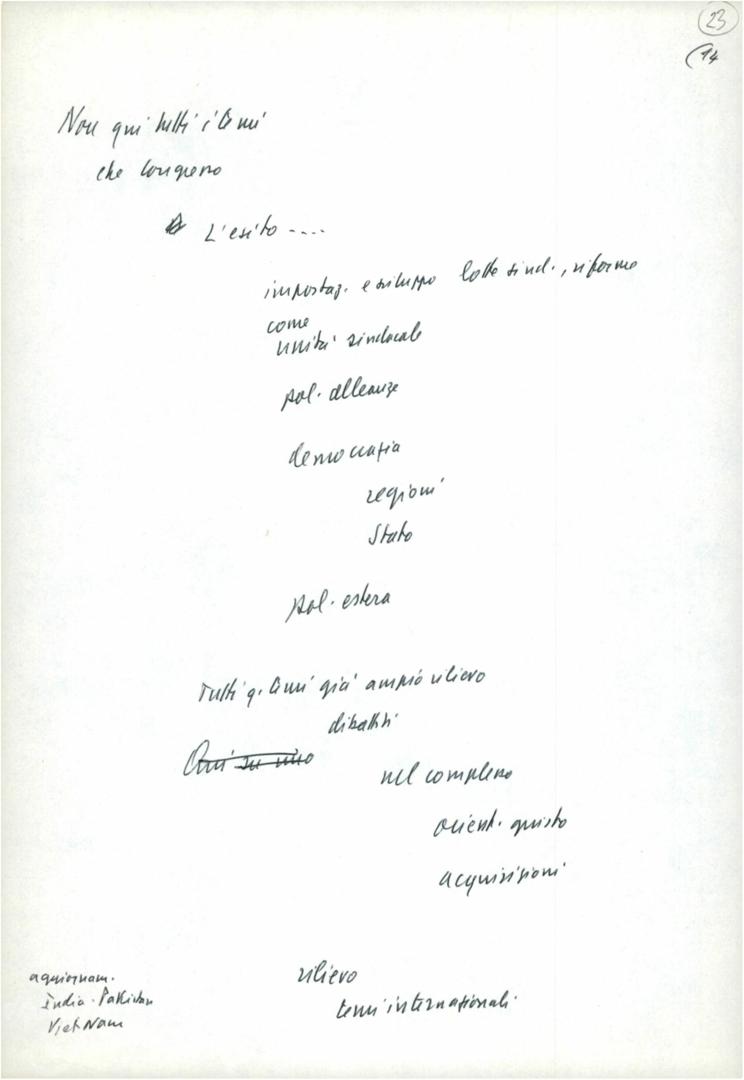 23
(14
Non qui tutti i temi
che congresso
L'esito ----
impostaz. e sviluppo lotte sind., riforme
come
unità sindacale
pol. alleanze
democrazia
regioni
Stato
pol. estera
Tutti q. temi già ampio rilievo
dibattiti
Qui su uno
nel complesso
orient. giusto
acquisizioni
aggiornam.
India-Pakistan
VietNam
rilievo
temi internazionali